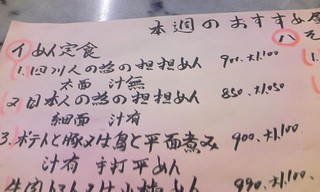 本週のおすすめ
イめん定食 ハ そ
1.四川人の為の担担めん 900.税1,100
太面 汁無
2日本人の為の担担めん 850.税1,050
細面 汁有
3.ポテトと豚又は鳥と平面煮み 900.税1,100.
汁有 手打平めん
990.税1,100